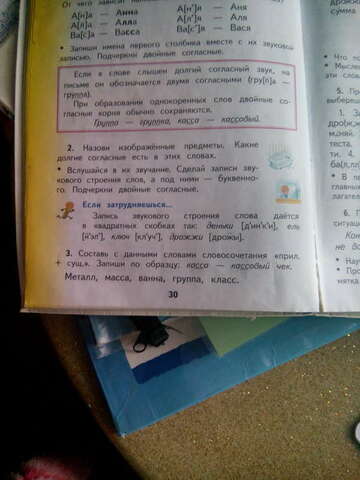 От чего зависит
А[н]а — Анна А[н']а — Аня
А[л]а — Алла А[л']а — Аля
Ва[с]а — Васса Ва[с']а — Вася
• Запиши имена первого столбика вместе с их звуковой
записью. Подчеркни двойные согласные.
Если в слове слышен долгий согласный звук, на
письме он обозначается двумя согласными (гру[п]а —
группа).
При образовании однокоренных слов двойные со-
гласные корня обычно сохраняются.
Группа — группка, касса — кассовый.
2. Назови изображённые предметы. Какие
долгие согласные есть в этих словах.
• Вслушайся в их звучание. Сделай записи зву-
кового строения слов, а под ними — буквенно-
го. Подчеркни двойные согласные.
Если затрудняешься...
Запись звукового строения слова даётся
в квадратных скобках так: деньки [д'ин'к'и], ель
[й'эл'], ключ [кл'уч'], дрожжи [дрожы].
3. Составь с данными словами словосочетания «прил.
+ сущ.». Запиши по образцу: касса — кассовый чек.
Металл, масса, ванна, группа, класс.
30
дрожж
сумма
• Что по
• Мыслен
эти слов
5. Пр
выбере
1. За
дро(ж,ж
м(н,нн
теста.
ти. 4.
ба(л,лл
• В
главным
предлож
6.
ситуаци
Кон
не до
• Науч
• Пр
мятка